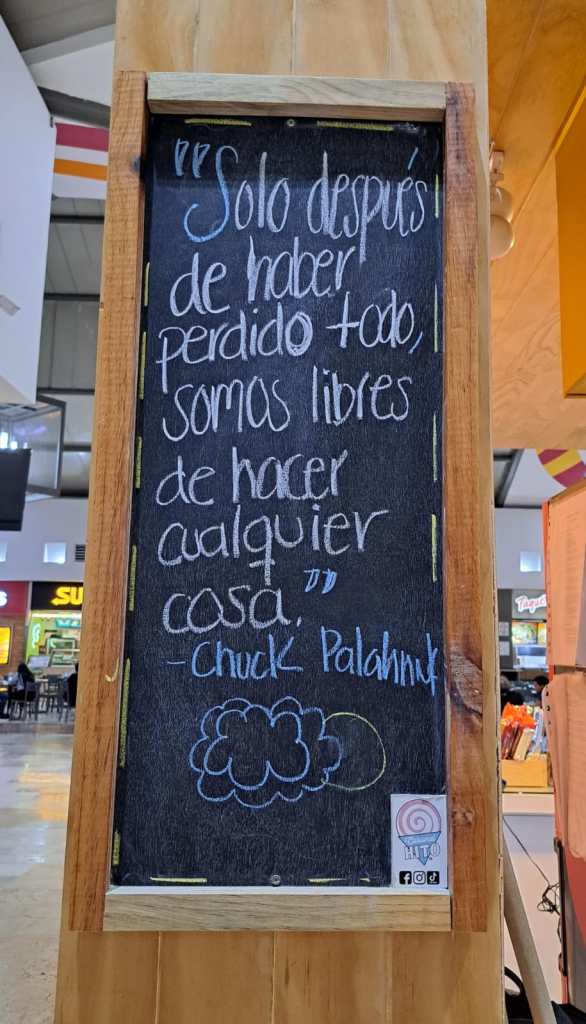 "Solo después
de haber
perdido todo,
somos libres
de hacer
cualquier
cosa."
-Chuck Palahnuk
HITO
SU